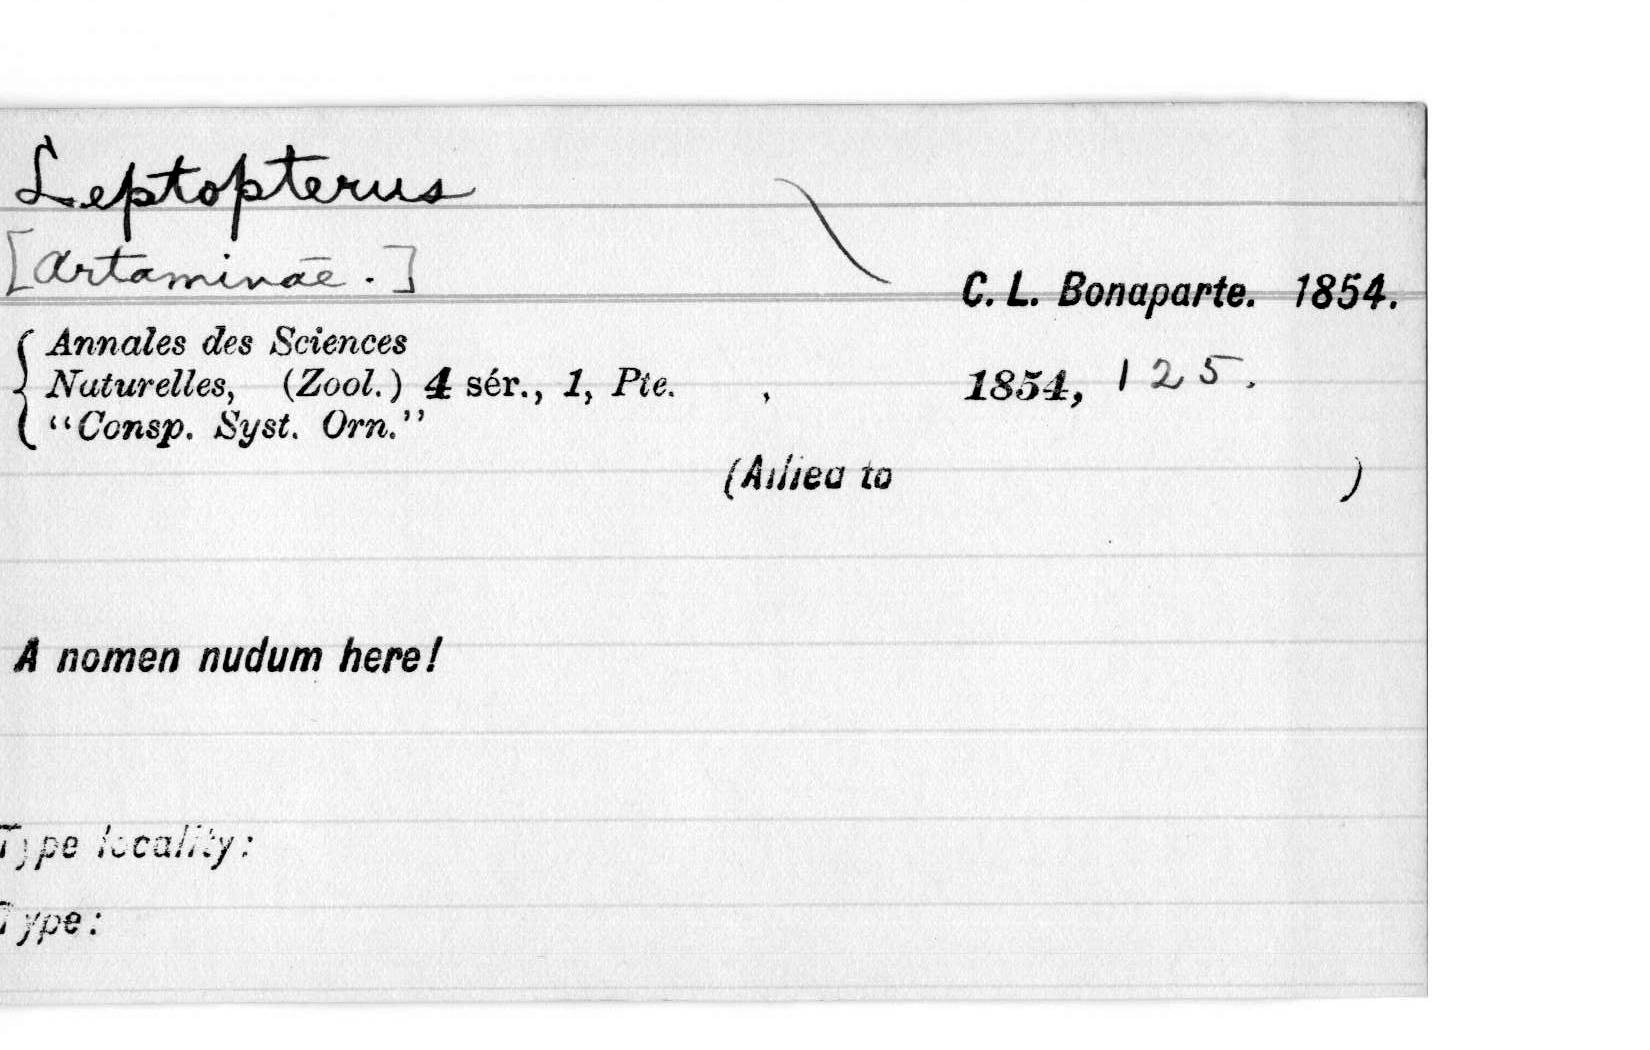 Leptopterus
[Artaminae.]
C. L. Bonaparte. 1854.
Annales des Sciences
Naturelles, (Zool.) 4 sér., 1, Pte. , 1854, 125.
"Consp. Syst. Orn."
(Allied to )
A nomen nudum here!
Type locality:
Type: